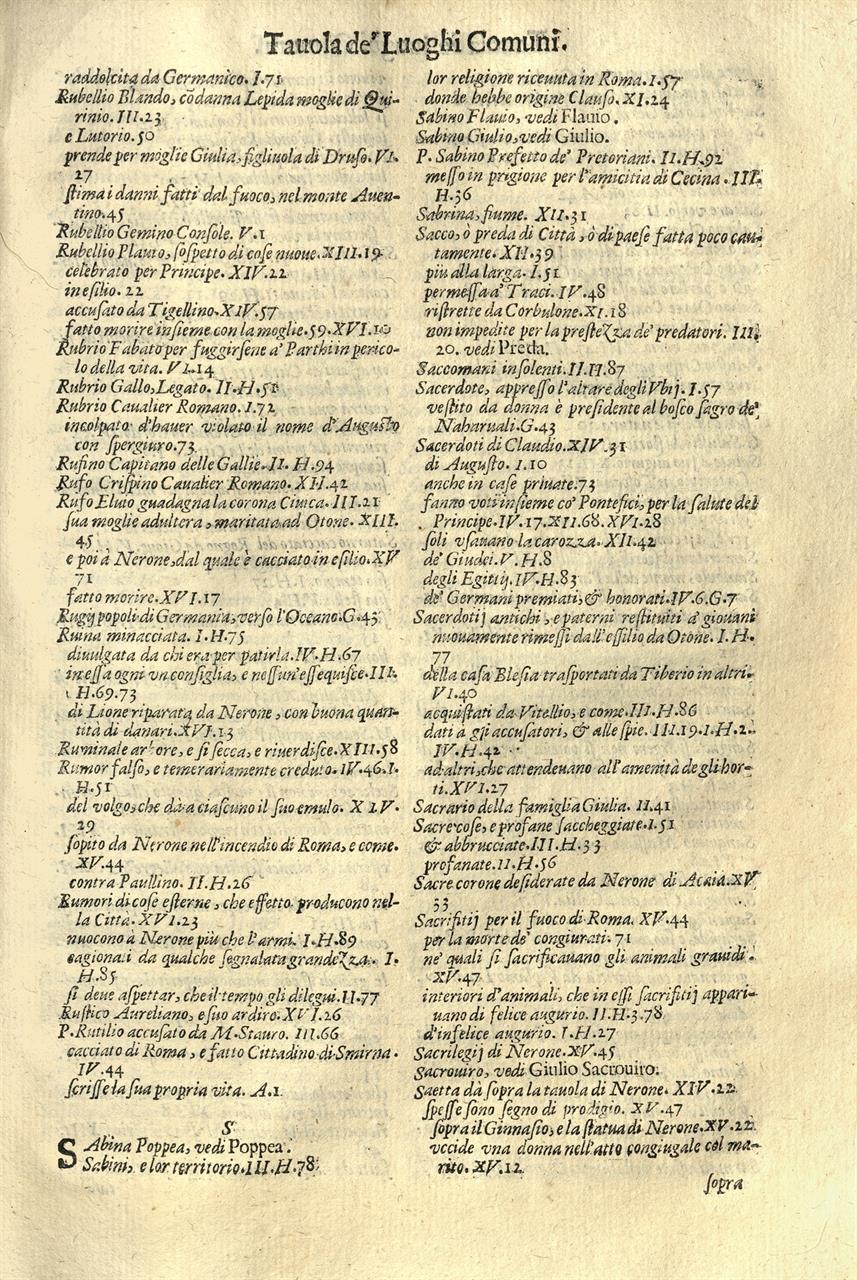 Tauola de' Luoghi Comuni.
raddolcita da Germanico. I.71
Rubellio Blando, cõdanna Lepida moglie di Qui-
rinio. III.23
e Lutorio. 50
prende per moglie Giulia, figliuola di Druso. VI.
27
stima i danni fatti dal fuoco, nel monte Auen-
tino. 45
Rubellio Gemino Console. V.1
Rubellio Plauto, sospetto di cose nuoue. XIII.19
celebrato per Principe. XIV.22
in esilio. 22
accusato da Tigellino. XIV.57
fatto morire insieme con la moglie. 59. XVI.10
Rubrio Fabato per fuggirsene a' Parthi in perico-
lo della vita. VI.14
Rubrio Gallo, Legato. II.H.51
Rubrio Caualier Romano. I.72
incolpato d'hauer violato il nome d'Augusto
con spergiuro. 73
Rufino Capitano delle Gallie. II. H.94
Rufo Crispino Caualier Romano. XH.42
Rufo Eluio guadagna la corona Ciuica. III.21
sua moglie adultera, maritata ad Otone. XIII.
45
e poi à Nerone, dal quale è cacciato in esilio. XV
71
fatto morire. XVI.17
Rugij popoli di Germania, verso l'Oceano. G.43
Ruina minacciata. I.H.75
diuulgata da chi era per patirla. IV.H.67
in essa ogni vn consiglia, e nessun'essequisce. III.
H.69.73
di Lione riparata da Nerone, con buona quan-
tità di danari. XVI.13
Ruminale arbore, e si secca, e riuerdisce. XIII.58
Rumor falso, e temerariamente creduto. IV.46. I.
H.51
del volgo, che dà a ciascuno il suo emulo. XIV.
29
sopito da Nerone nell'incendio di Roma, e come.
XV.44
contra Paullino. II.H.26
Rumori di cose esterne, che effetto producono nel-
la Città. XVI.23
nuocono à Nerone più che l'armi. I.H.89
cagionati da qualche segnalata grandezza. I.
H.85
si deue aspettar, che il tempo gli dilegui. II.77
Rustico Aureliano, e suo ardire. XVI.26
P. Rutilio accusato da M. Stauro. III.66
cacciato di Roma, e fatto Cittadino di Smirna.
IV.44
scrisse la sua propria vita. A.1
S
SAbina Poppea, vedi Poppea.
Sabini, e lor territorio. III.H.78
lor religione riceuuta in Roma. I.57
donde hebbe origine Clauso. XI.24
Sabino Flauio, vedi Flauio.
Sabino Giulio, vedi Giulio.
P. Sabino Prefetto de' Pretoriani. II.H.92
messo in prigione per l'amicitia di Cecina. III.
H.36
Sabrina, fiume. XII.31
Sacco, ò preda di Città, ò di paese fatta poco cau-
tamente. XH.39
più alla larga. I.51
permessa a' Traci. IV.48
ristrette da Corbulone. XI.18
non impedite per la prestezza de' predatori. III.
20. vedi Preda.
Saccomani insolenti. II.H.87
Sacerdote, appresso l'altare degli Vbij. I.57
vestito da donna è presidente al bosco sagro de'
Naharuali. G.43
Sacerdoti di Claudio. XIV.31
di Augusto. I.10
anche in case priuate. 73
fanno voti insieme co' Pontefici, per la salute del
Principe. IV.17. XII.68. XVI.28
soli vsauano la carozza. XII.42
de' Giudei. V.H.8
degli Egitij. IV.H.83
de' Germani premiati, & honorati. IV.6.G.7
Sacerdotij antichi, e paterni restituiti a' giouani
nuouamente rimessi dall'essilio da Otone. I.H.
77
della casa Blesia trasportati da Tiberio in altri.
VI.40
acquistati da Vitellio, e come. III.H.86
dati a gli accusatori, & alle spie. III.19. I.H.2.
IV.H.42
ad altri, che attendeuano all'amenità de gli hor-
ti. XVI.27
Sacrario della famiglia Giulia. II.41
Sacre cose, e profane saccheggiate. I.51
& abbrucciate. III.H.33
profanate. II.H.56
Sacre corone desiderate da Nerone di Acaia. XV
33
Sacrifitij per il fuoco di Roma. XV.44
per la morte de' congiurati. 71
ne' quali si sacrificauano gli animali grauidi.
XV.47
interiori d'animali, che in essi sacrifitij appari-
uano di felice augurio. II.H.3.78
d'infelice augurio. I.H.27
Sacrilegij di Nerone. XV.45
Sacrouiro, vedi Giulio Sacrouiro.
Saetta dà sopra la tauola di Nerone. XIV.22
spesse sono segno di prodigio. XV.47
sopra il Ginnasio, e la statua di Nerone. XV.22
vccide vna donna nell'atto congiugale col ma-
rito. XV.12
sopra